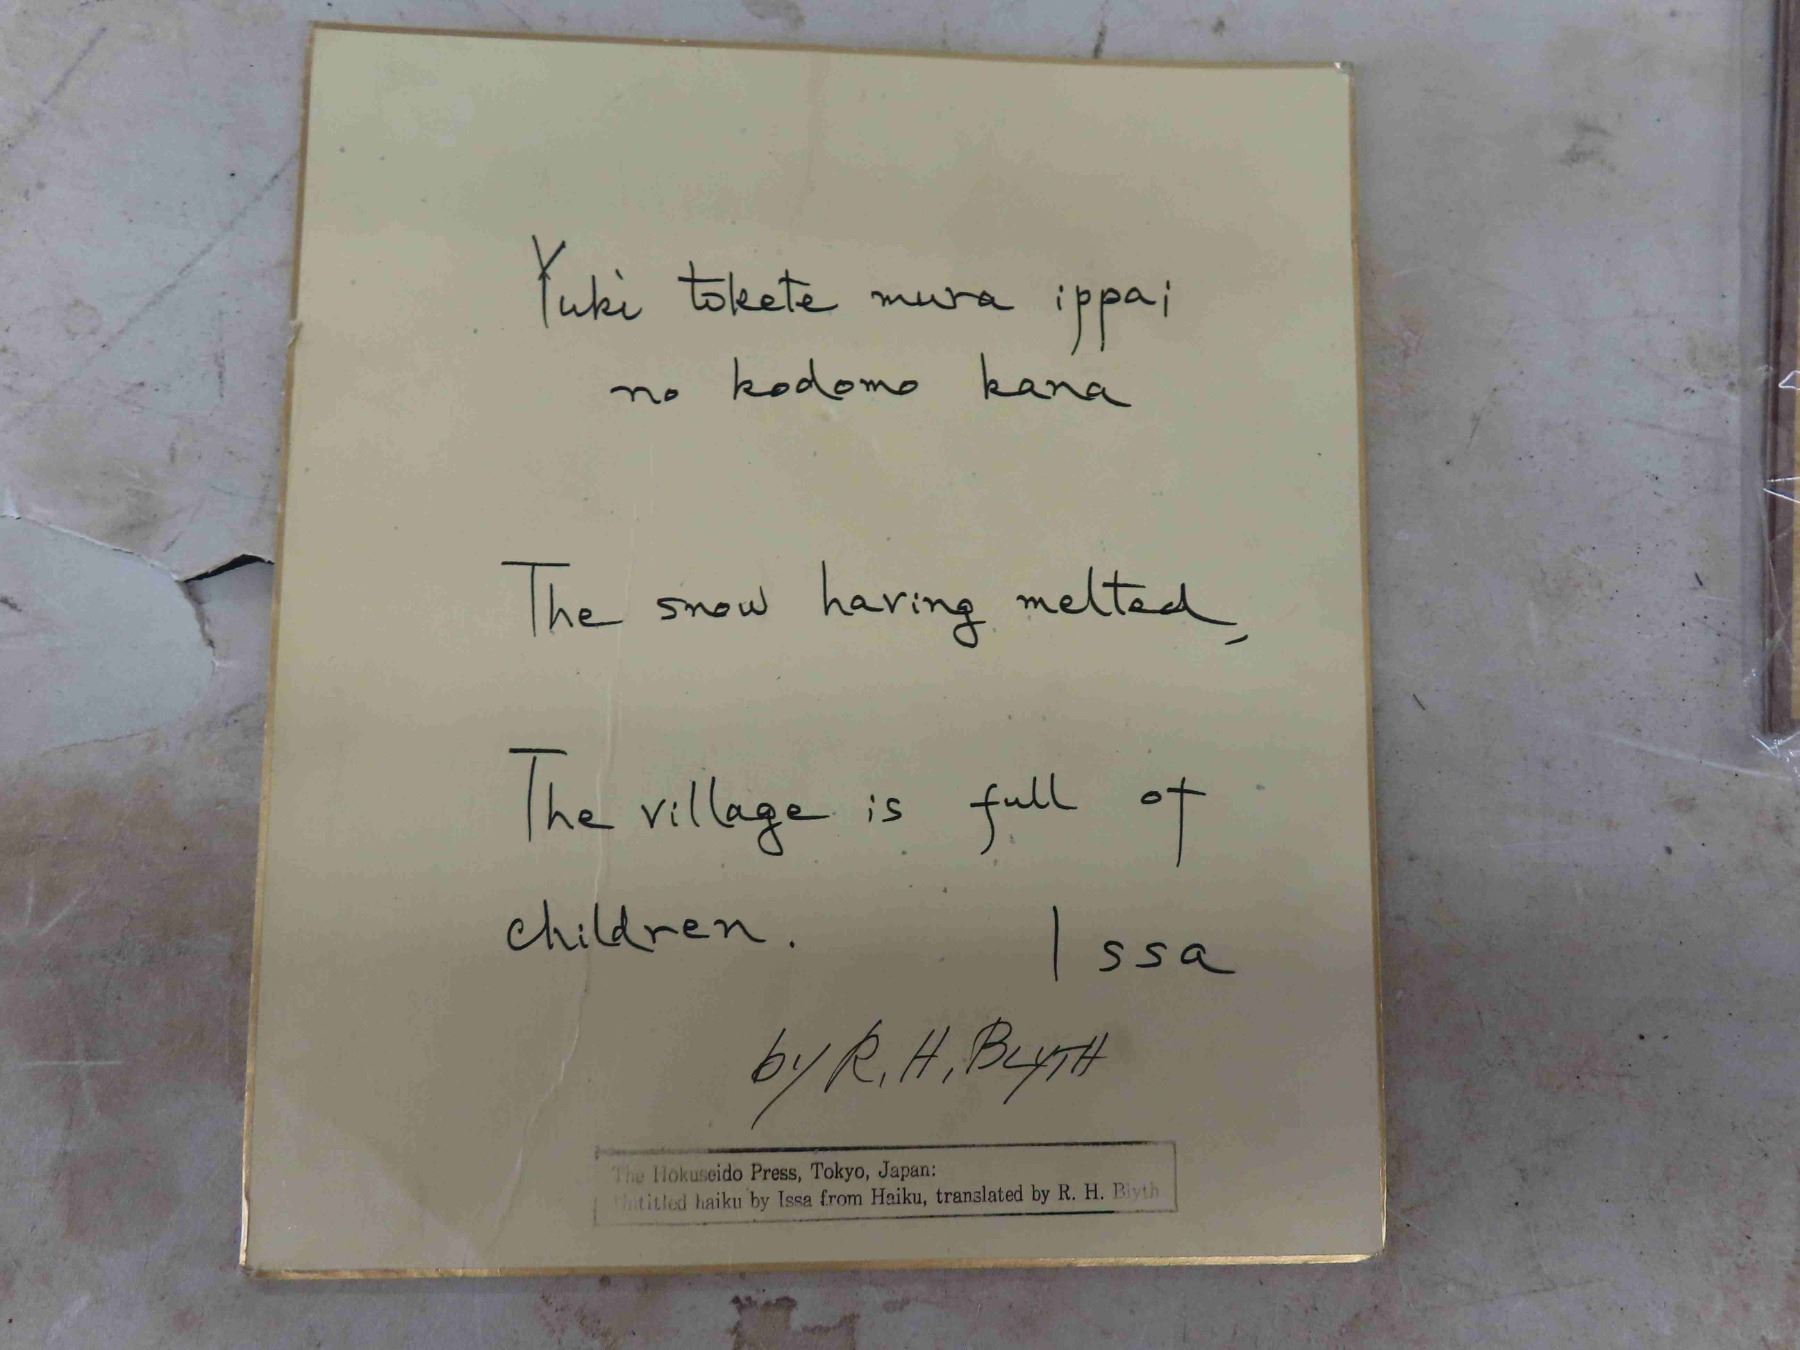 Yuki tokete mura ippai
no kodomo kana
The snow having melted,
The village is full of
children.
Issa
by R. H. BLYTH
The Hokuseido Press, Tokyo, Japan:
Untitled haiku by Issa from Haiku, translated by R. H. Blyth